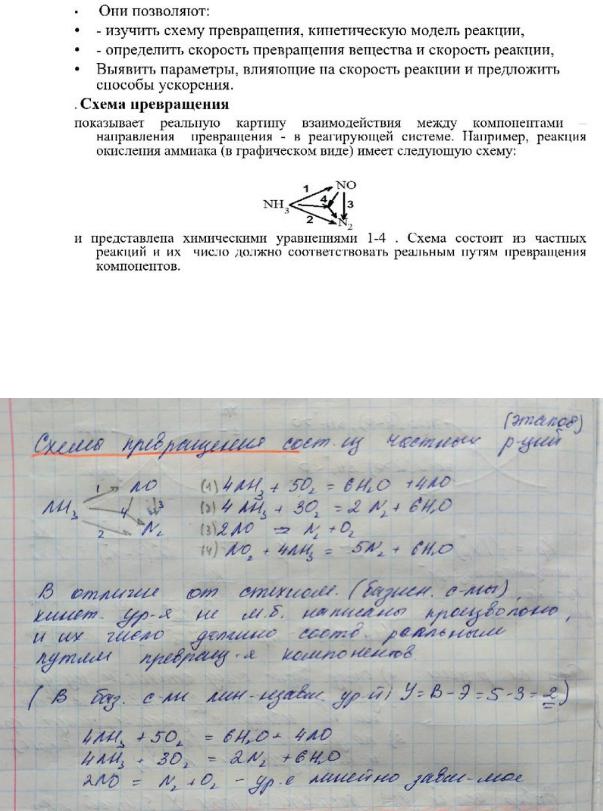 • Они позволяют:
• - изучить схему превращения, кинетическую модель реакции,
• - определить скорость превращения вещества и скорость реакции,
• Выявить параметры, влияющие на скорость реакции и предложить
способы ускорения.
. Схема превращения
показывает реальную картину взаимодействия между компонентами –
направления превращения - в реагирующей системе. Например, реакция
окисления аммиака (в графическом виде) имеет следующую схему:
1 NO
NH3 4 3
2 N2
и представлена химическими уравнениями 1-4 . Схема состоит из частных
реакций и их число должно соответствовать реальным путям превращения
компонентов.
(этапов)
Схема превращения сост. из частных р-ций
1 NO (1) 4NH3 + 5O2 = 6H2O + 4NO
NH3 4 3 (2) 4NH3 + 3O2 = 2N2 + 6H2O
2 N2 (3) 2NO = N2 + O2
(4) NO2 + 4NH3 = 5N2 + 6H2O
В отличие от стехиом. (базисн. с-мы)
кинет. ур-я не м.б. написаны произвольно,
и их число должно соотв. реальным
путям превращ-я компонентов
(В баз. с-ме лин-незав. ур-й) У=В-Э=5-3=2)
4NH3 + 5O2 = 6H2O + 4NO
4NH3 + 3O2 = 2N2 + 6H2O
2NO = N2 + O2 - ур-е линейно зависимое